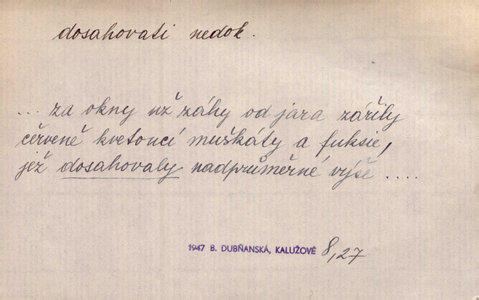 dosahovati nedok.
... za okny už záhy od jara zářily
červeně kvetoucí muškáty a fuksie,
jež dosahovaly nadprůměrné výše ....
1947 B. DUBŇANSKÁ, KALUŽOVÉ 8,27